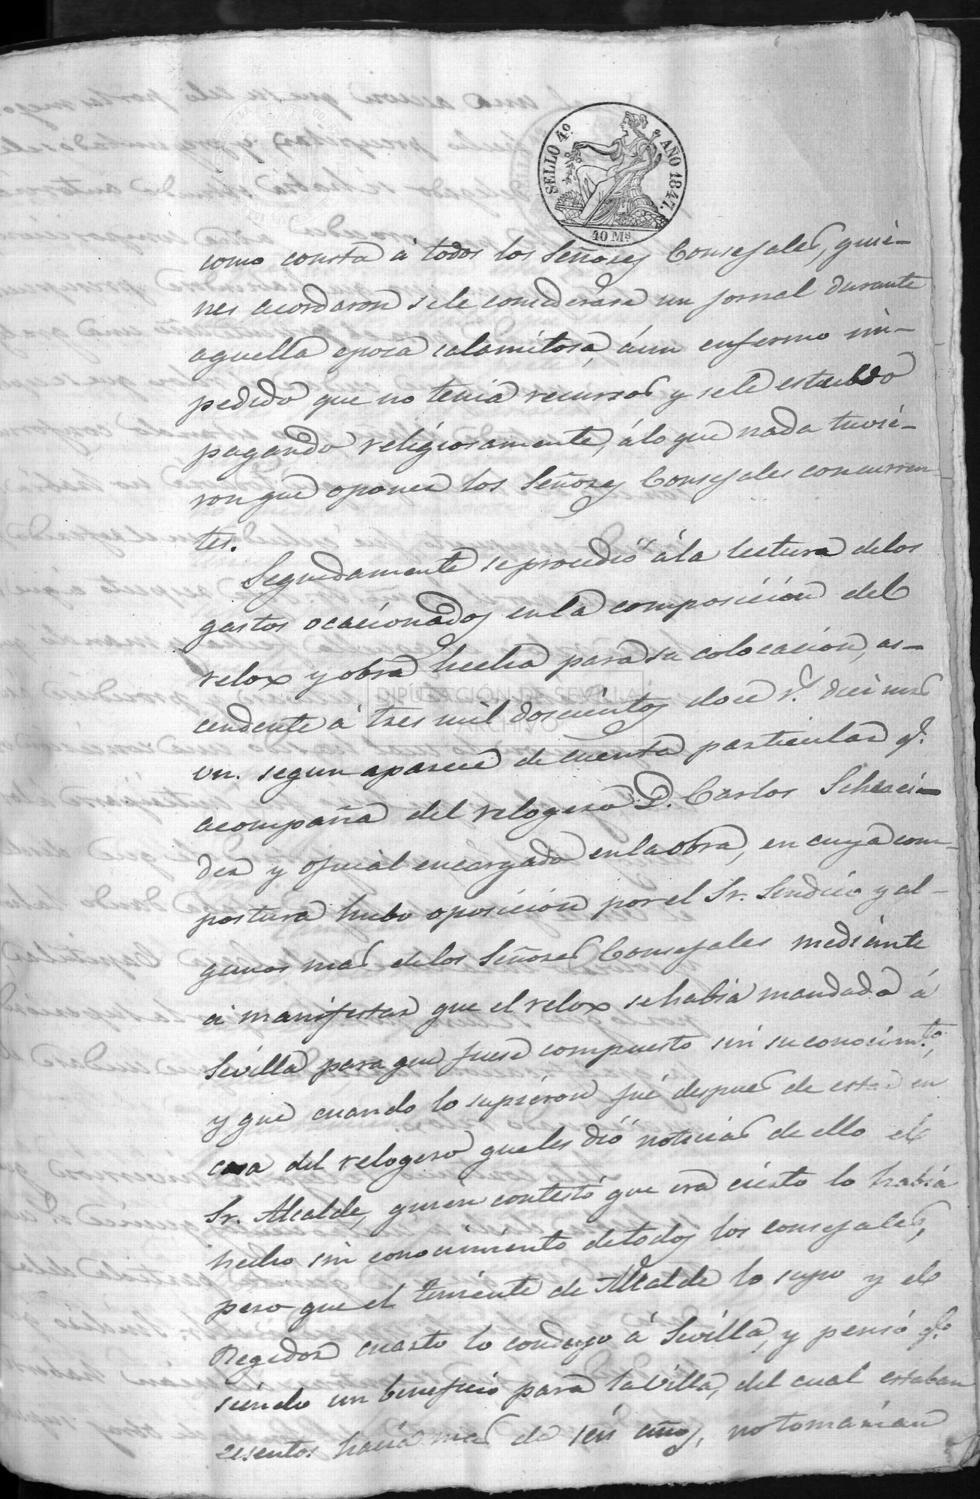 SELLO 4º AÑO 1847.
40 Ms
como consta á todos los Señores Consejales, quie-
nes acordaron se le considerara un jornal durante
aquella epoca calamitosa, á un enfermo im-
pedido que no tenia recursos y se le estubo
pagando religiosamente, á lo que nada tuvie-
ron que oponer los Señores Consejales concurren-
tes.
Seguidamente se procedió á la lectura delos
gastos ocacionados en la composicion del
relox y obra hecha para su colocacion, as-
cendente á tres mil doscientos doce rs. diez mrs
vn. segun aparece de cuenta particular q.
acompaña del relogero D. Carlos
y oficial encargado en la obra, en cuya com-
postura hubo oposicion por el Sr. Sindico y al-
gunos mas delos Señores Consejales mediante
á manifestar que el relox se habia mandado á
Sevilla para que fuese compuesto sin su conocim.to,
y que cuando lo supieron fué despues de estar en
casa del relogero que les dió noticias de ello el
Sr. Alcalde, quien contestó que era cierto lo habia
hecho sin conocimiento de todos los consejales,
pero que el Teniente de Alcalde lo supo y el
Regidor cuarto lo condujo á Sevilla, y pensó q.e
siendo un beneficio para la Villa, del cual estaban
esentos hacia mas de seis años, no tomarian
DIPUTACIÓN DE SEVILLA
ARCHIVO